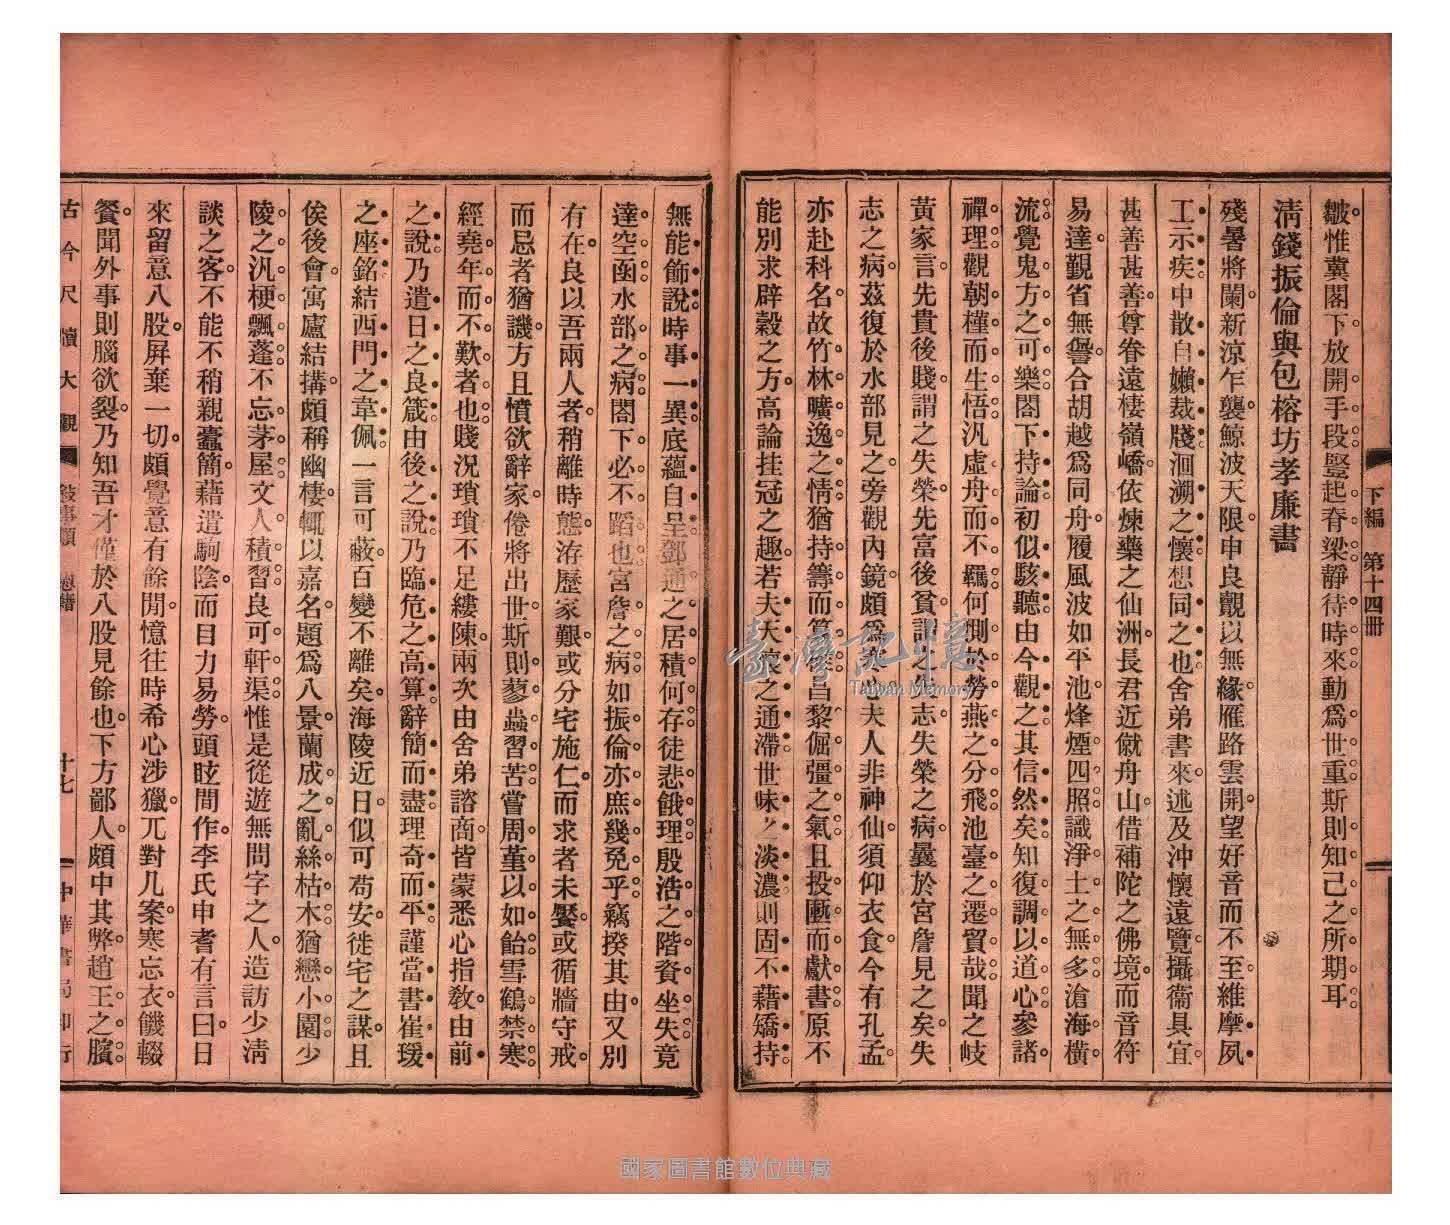 下編 第十四冊
皺惟冀閣下放開手段豎起脊梁靜待時來動爲世重斯則知己之所期耳
淸錢振倫與包榕坊孝廉書
殘暑將闌新涼乍襲鯨波天限申良覿以無緣雁路雲開望好音而不至維摩夙
工示疾中散自嬾裁牋洄溯之懷想同之也舍弟書來述及沖懷遠覽攝衞具宜
甚善甚善尊眷遠棲嶺嶠依煉藥之仙洲長君近僦舟山借補陀之佛境而音符
易達覲省無礬合胡越爲同舟履風波如平池烽煙四照識淨土之無多滄海橫
流覺鬼方之可樂閣下持論初似駭聽由今觀之其信然矣知復調以道心參諸
禪理觀朝槿而生悟汎虛舟而不羈何惻於勞燕之分飛池臺之遷貿哉聞之岐
黃家言先貴後賤謂之失榮先富後貧謂之失志失榮之病曩於宮詹見之矣失
志之病茲復於水部見之旁觀內鏡頗爲寒心夫人非神仙須仰衣食今有孔孟
亦赴科名故竹林曠逸之情猶持籌而算 昌黎倔彊之氣且投匭而獻書原不
能別求辟穀之方高論挂冠之趣若夫天懷之通滯世味之淡濃則固不藉矯持
無能飾說時事一異底蘊自呈鄧通之居積何存徒悲餓理殷浩之階資坐失竟
達空函水部之病閣下必不蹈也宮詹之病如振倫亦庶幾免乎竊揆其由又別
有在良以吾兩人者稍離時態洊歷家艱或分宅施仁而求者未饜或循牆守戒
而忌者猶譏方且憤欲辭家倦將出世斯則蓼蟲習苦嘗周堇以如飴雪鶴禁寒
經堯年而不歎者也賤況瑣瑣不足縷陳兩次由舍弟諮商皆蒙悉心指敎由前
之說乃遣日之良箴由後之說乃臨危之高算辭簡而盡理奇而平謹當書崔瑗
之座銘結西門之韋佩一言可蔽百變不離矣海陵近日似可苟安徙宅之謀且
俟後會寓廬結搆頗稱幽棲輒以嘉名題爲八景蘭成之亂絲枯木猶戀小園少
陵之汎梗飄蓬不忘茅屋文人積習良可軒渠惟是從遊無問字之人造訪少淸
談之客不能不稍親蠹簡藉遣駒陰而目力易勞頭眩間作李氏申耆有言曰日
來留意八股屏棄一切頗覺意有餘閒憶往時希心涉獵兀對几案寒忘衣饑輟
餐聞外事則腦欲裂乃知吾才僅於八股見餘也下方鄙人頗中其弊趙王之臏
古今尺牘大觀 敍事類 十七 中華書局印行
臺灣記憶
Taiwan Memory
國家圖書館數位典藏